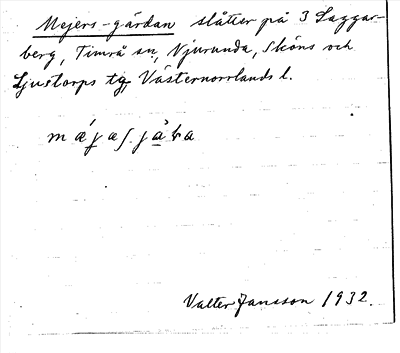 Mejers-gärdan slåtter på 3 Laggar-
berg, Timrå sn, Njurunda, Sköns och
Ljustorps tg Västernorrlands l.
Valter Jansson 1932.